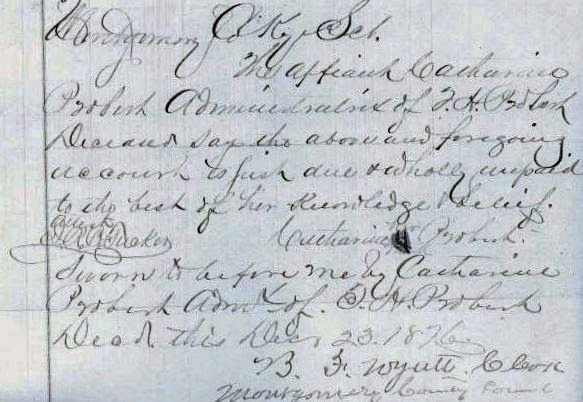 Montgomery Co Ky Sct.
The affiant Catharine
Probert Administratrix of T. H. Probert
Deceased says the above and foregoing
account is just due & wholly unpaid
to the best of her knowledge & belief.
Attest
Catharine her Probert
Sworn to before me by Catharine
Probert Admx of. T. H. Probert
Decd this Decr 23. 1876
B. F. Wyatt Clerk
Montgomery County Court